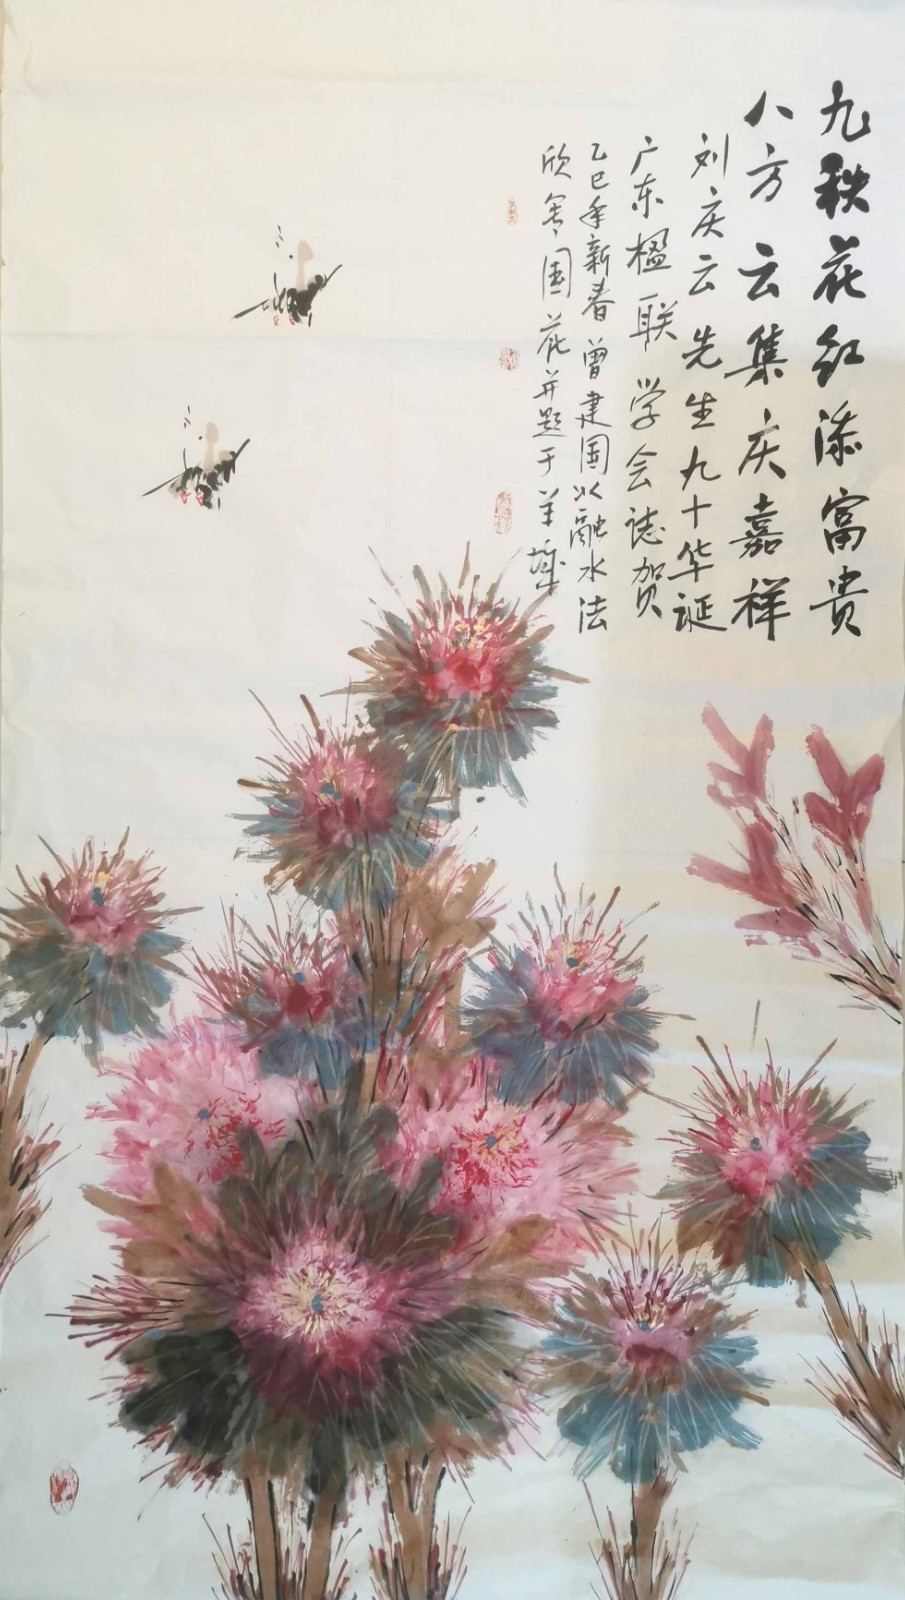 九秩花红添富贵
八方云集庆嘉祥
刘庆云先生九十华诞
广东楹联学会誌贺
乙巳年新春曾建国以融水法
欣写国花并题于羊城